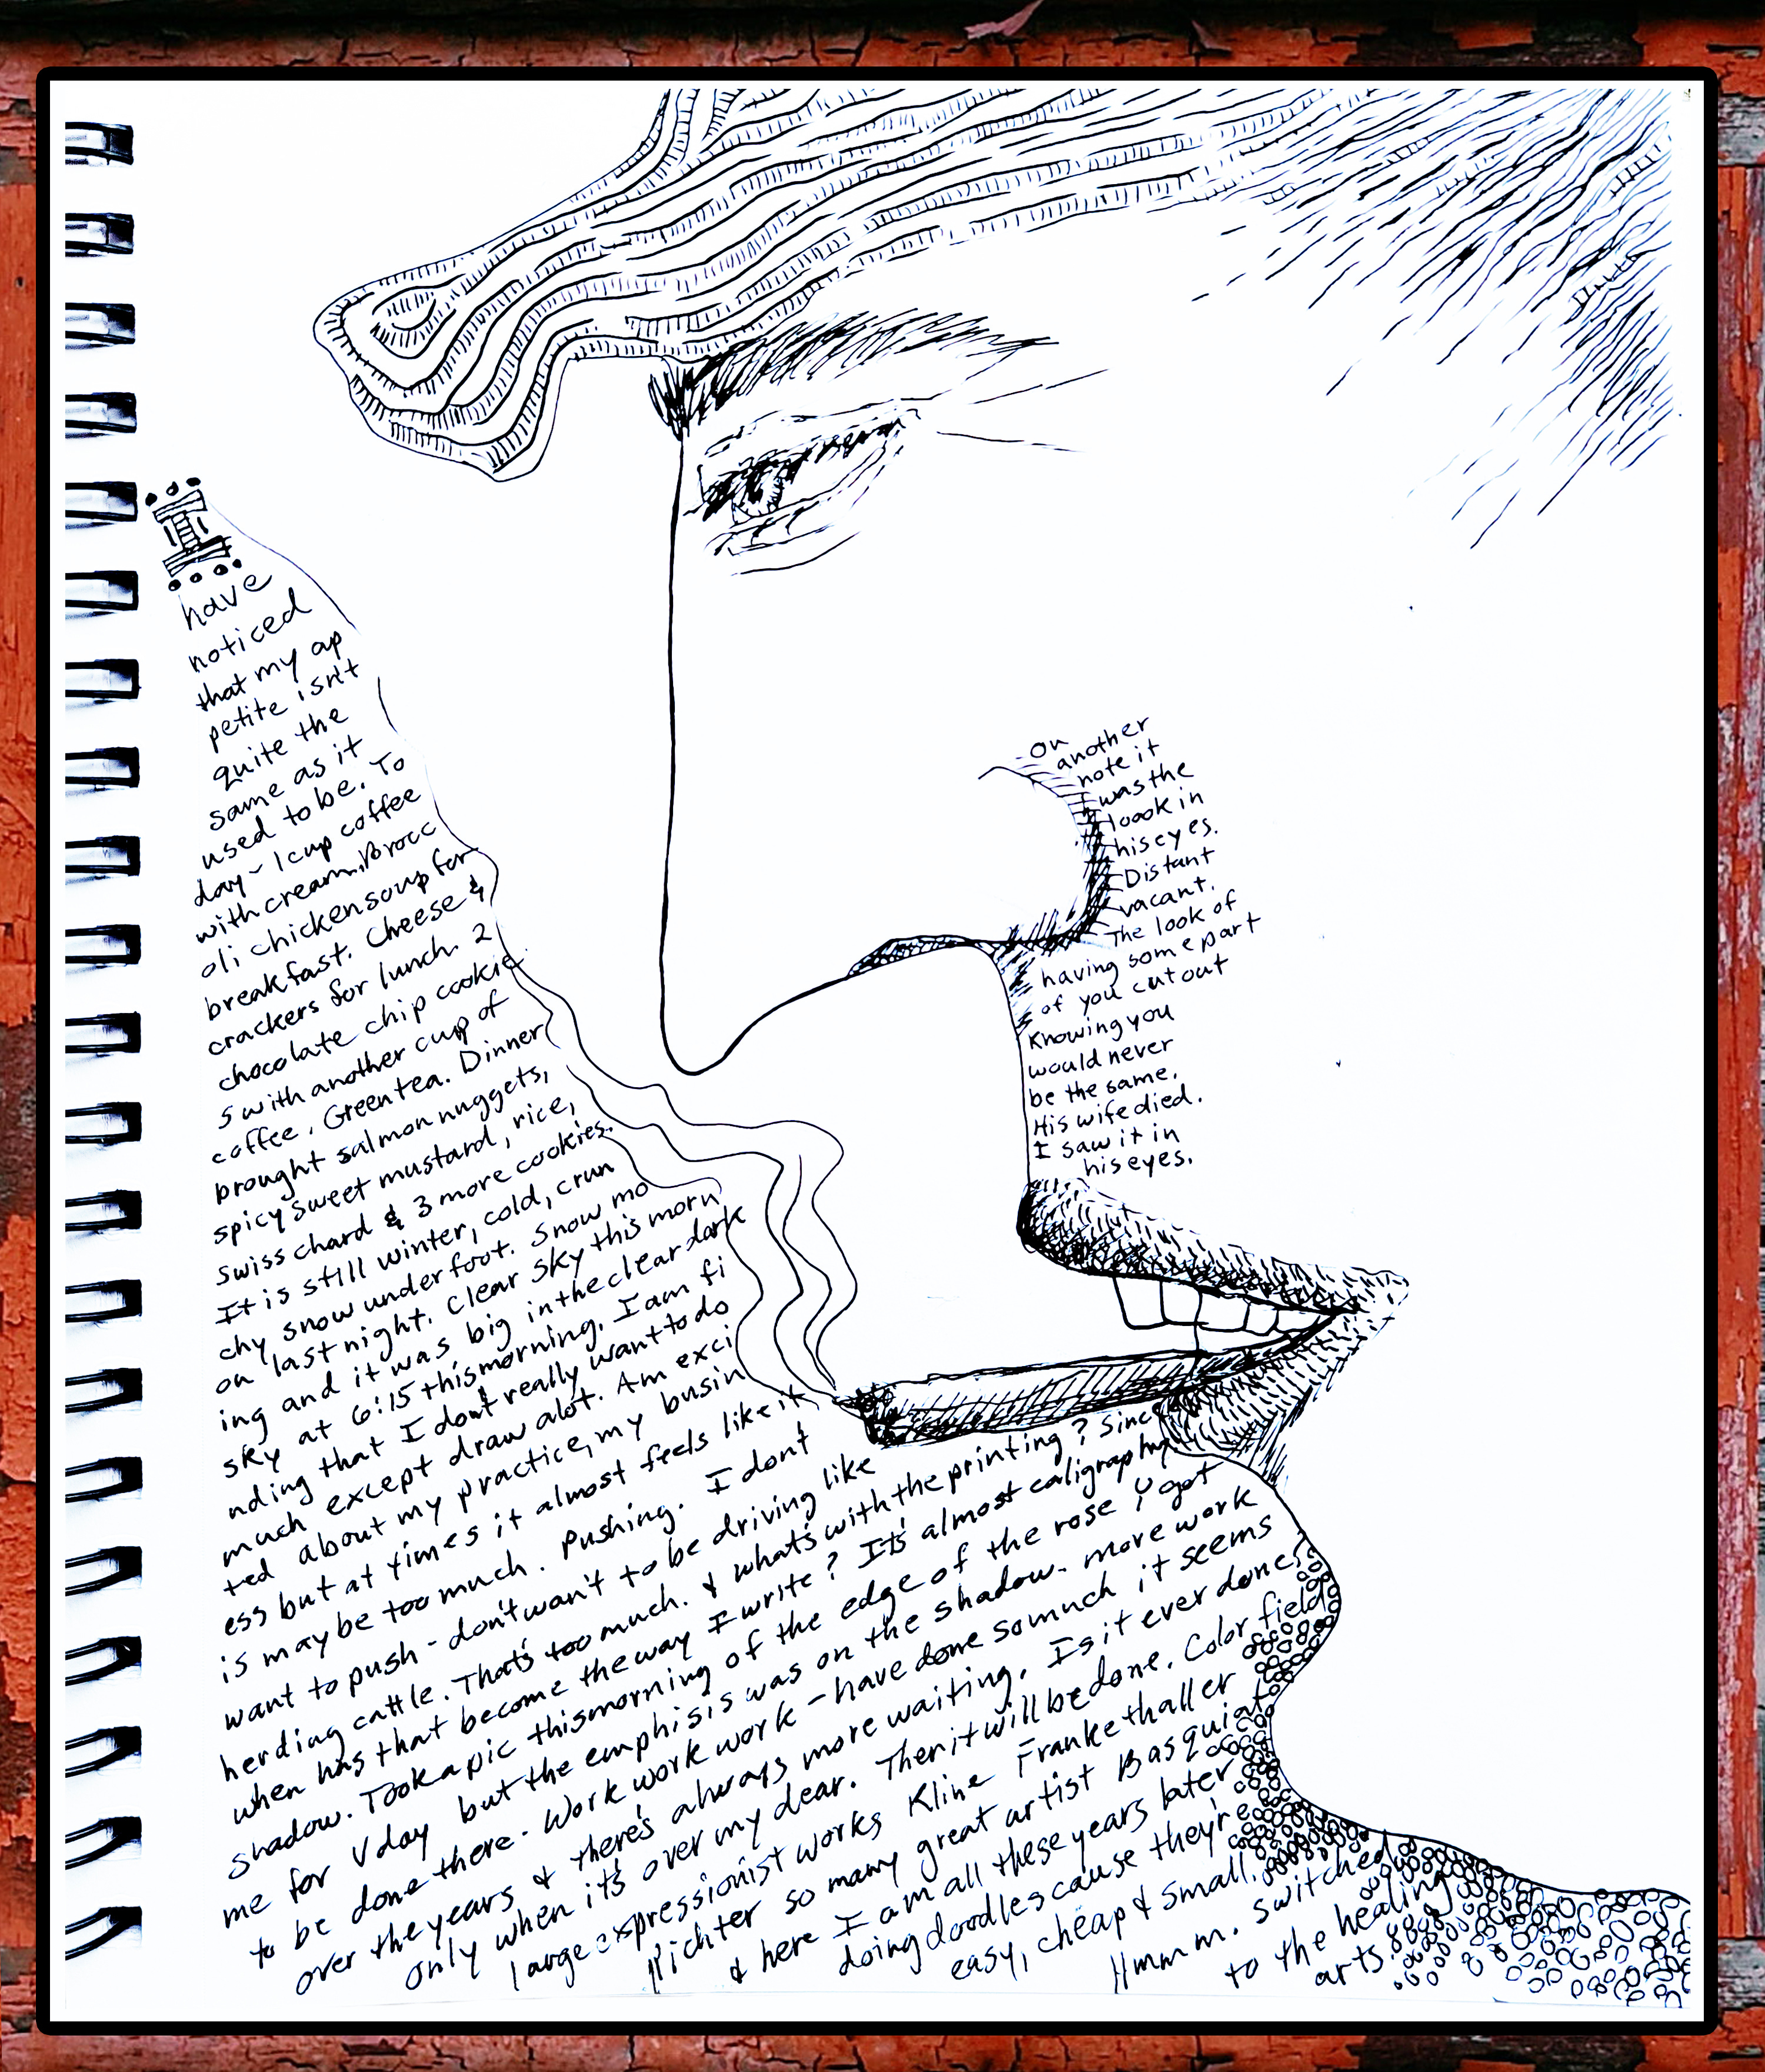 I
have
noticed
that my ap
petite isn't
quite the
same as it
used to be. To
day - 1 cup coffee
with cream. Brocc
oli chicken soup for
breakfast. Cheese &
crackers for lunch. 2
chocolate chip cookie
s with another cup of
coffee. Green tea. Dinner
brought salmon nuggets,
spicy sweet mustard, rice,
swiss chard & 3 more cookies.
It is still winter, cold, crun
chy snow underfoot. Snow mo
on last night. Clear sky this morn
ing and it was big in the clear dark
sky at 6:15 this morning. I am fi
nding that I don't really want to do
much except draw alot. Am exci
ted about my practice, my busin
ess but at times it almost feels like it
is may be too much. Pushing. I don't
want to push - don't want to be driving like
herding cattle. That's too much. & what's with the printing? Since
when has that become the way I write? It's almost caligraphy
shadow. Took a pic this morning of the edge of the rose y got
me for V day but the emphisis was on the shadow. more work
to be done there. Work work work - have done so much it seems
over the years & there's always more waiting. Is it ever done?
only when it's over my dear. Then it will be done. Color field
large expressionist works Kline Frankethaller
Richter so many great artist Basquiat
& here I am all these years later
doing doodles cause they're
easy, cheap & small.
Hmmm. Switched
to the healing
arts.
On
another
note it
was the
loook in
his eyes.
Distant
vacant.
The look of
having some part
of you cut out
Knowing you
would never
be the same.
His wife died.
I saw it in
his eyes.